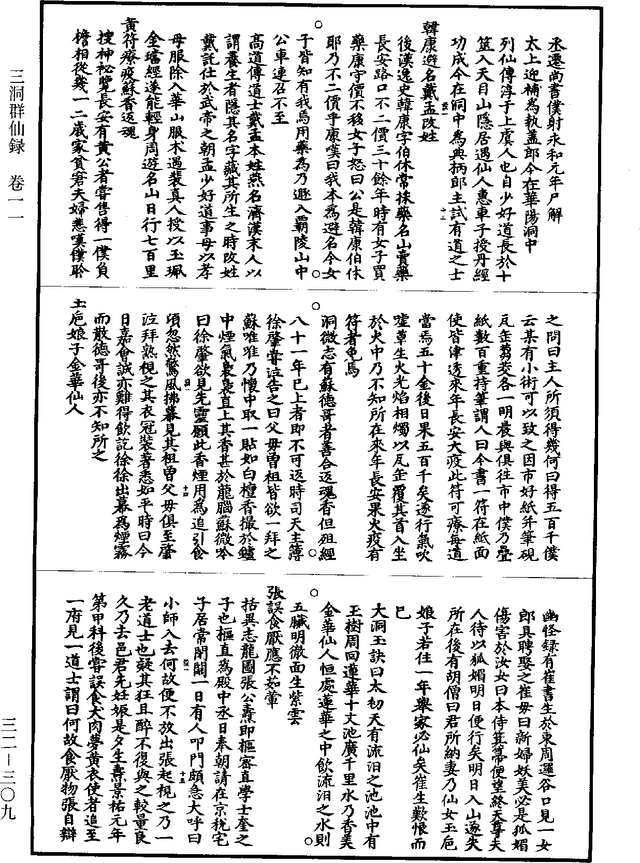 三洞群仙録　卷一一
三二—三〇九
丞遷尚書僕射永和元年尸解
太上迎補為執蓋郎今在華陽洞中
列仙傳淳于上虞人也自少好道長於卜
筮入天目山隱居遇仙人惠車子授丹經
功成今在洞中為典柄郎主試有道之士
韓康避名戴孟改姓
後漢逸史韓康字伯休常採藥名山賣藥
長安路口不二價三十餘年時有女子買
藥康守價不移女子怒曰公是韓康伯休
耶乃不二價乎康嘆曰我本為避名今女
子皆知有我焉用藥為乃遯入霸陵山中
公車連召不至
高道傳道士戴孟本姓燕名濟漢末人以
謂養生者隱其名字藏其所生之時改姓
戴託仕於武帝之朝孟少好道事母以孝
母服除入華山服术遇裴真人授以玉珮
金璫經遂能輕身周遊名山日行七百里
黃符療疫蘇香返魂
搜神祕覽長安有黃公者嘗售得一僕負
檐相從幾一二歲家貧窘夫婦愁嘆僕聆
之問曰主人所須得幾何曰得五百千僕
云某有小術可以致之因市好紙并筆硯
瓦缶芻茭各一明晨與俱往市中僕乃疊
紙數百重持筆謂人曰今書一符在紙面
使皆津透來年長安大疫此符可療每道
當焉五十金後日果五百千矣遂行氣吹
噓草生火光焰相燭以瓦缶覆其首入坐
於火中乃不知所在來年長安果火疫有
符者免焉
洞微志有蘇德哥者善合返魂香但殂經
八十一年已上者即不可返時司天主簿
徐肇嘗泣告之曰父母曾祖皆欲一拜之
蘇唯唯乃懷中取一貼如白檀香撮於爐
中煙氣裊裊直上其香甚於龍腦蘇微吟
曰徐肇欲見先靈願此香煙用為追引食
頃忽然驚風拂幕見其祖曾父母俱至肇
泣拜熟視之其衣冠裝著悉如平時曰今
日嘉會誠亦難得飲訖徐徐出幕為煙霧
而散德哥後亦不知所之
土巵娘子金華仙人
幽怪録有崔書生於東周邏谷口見一女
郎具聘娶之崔母曰新婦妖美必是狐媚
傷害於汝女曰本侍箕箒便望終天尊夫
人待以狐媚明日便行矣明日入山遂失
所在後有胡僧曰君所納妻乃仙女玉巵
娘子若住一年舉家必仙矣崔生歎恨而
已
大洞玉訣曰太初天有流汨之池池中有
玉樹周回蓮華十丈池廣千里水乃香美
金華仙人恒處蓮華之中飲流汨之水則
五臟明徹面生紫雲
張誤食厭應不茹葷
括異志龍圖張公燾即樞密直學士奎之
子也樞直為殿中丞日奉朝請在京稅宅
子居常閉閣一日有人叩門頗急大呼曰
小師入去何故便不放出張起視之乃一
老道士也疑其狂且醉不復與之較量良
久乃去邑君先妊娠是夕生壽景祐元年
第甲科後嘗誤食犬肉夢黃衣使者追至
一府見一道士謂曰何故食厭物張自辯